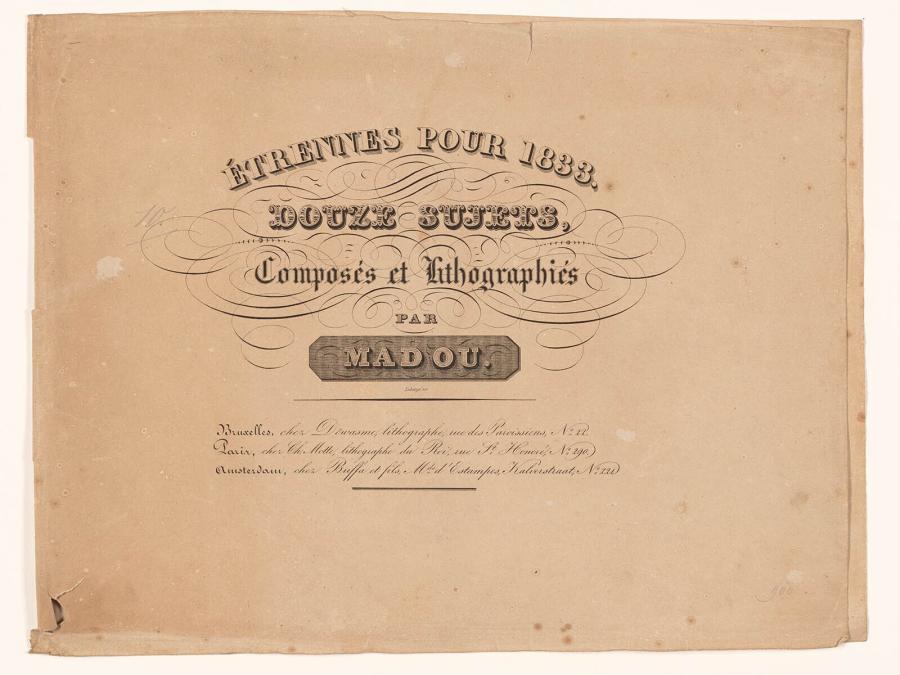 ÉTRENNES POUR 1833.
DOUZE SUJETS,
Composés et Lithographiés
PAR
MADOU.
Bruxelles, chez Dewasme, lithographe, rue des Paroissiens, No. 22.
Paris, chez Ch. Motte, lithographe du Roi, rue St. Honoré, No. 290.
Amsterdam, chez Buffa et fils, Mds. d'Estampes, Kalverstraat, No.